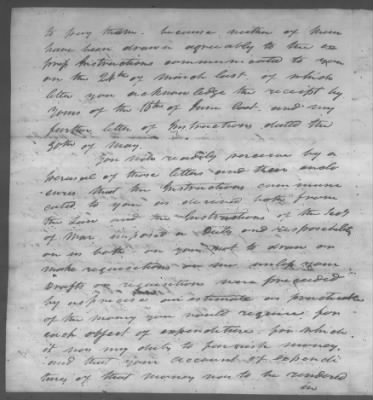 to pay them. because neither of them
have been drawn agreeably to the ex
press Instructions communicated to you
on the 24th of March last. of which
letter you acknowledge the receipt by
yours of the 15th of June last. and my
further letter of Instructions dated the
30th of May.
You will readily perceive by a
perusal of those letters and their enclo
sures that the Instructions commu
cated to you as derived both from
the Law and the Instructions of the Secy
of War imposed a Duty and responsibility
on us both - on you not to draw on
make requisitions on me unless your
Drafts or requisition were preceded
by as precise an estimate as practicable
of the money you would require for
each object of expenditure for which
it was my duty to furnish money.
and that your account of expendi
tures of that money was to be rendered
in